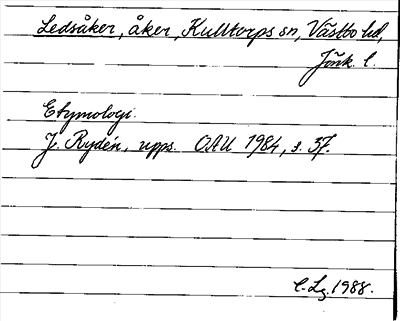 Ledsåker, åker, Kulltorps sn, Västbo hd,
Jönk. l.
Etymologi.
J. Rydén, upps. OAU 1984, s. 37.
C. Lg. 1988.